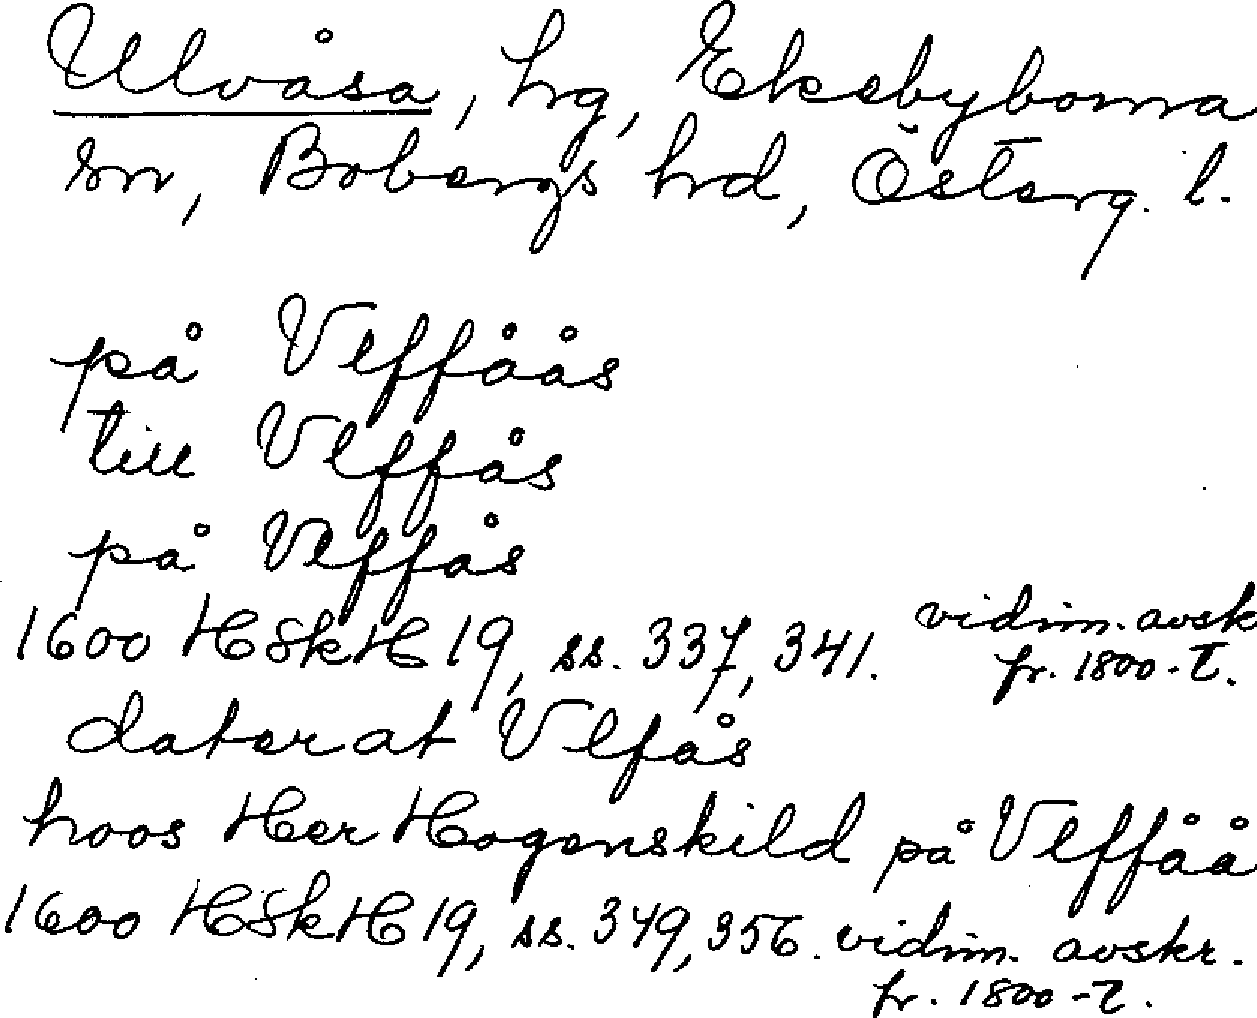 Ulvåsa, hg, Ekebyborna
sn, Bobergs hd, Österg. l.
på Vlffåås
till Vlffås
på Vlffås
1600 HSkH 19, ss. 337, 341. vidim. avsk
fr. 1800-t.
daterat Vlfås
hoos Her Hogenskild på Vlffåå
1600 HSkH 19, ss. 349, 356. vidim. avskr.
fr. 1800-t.